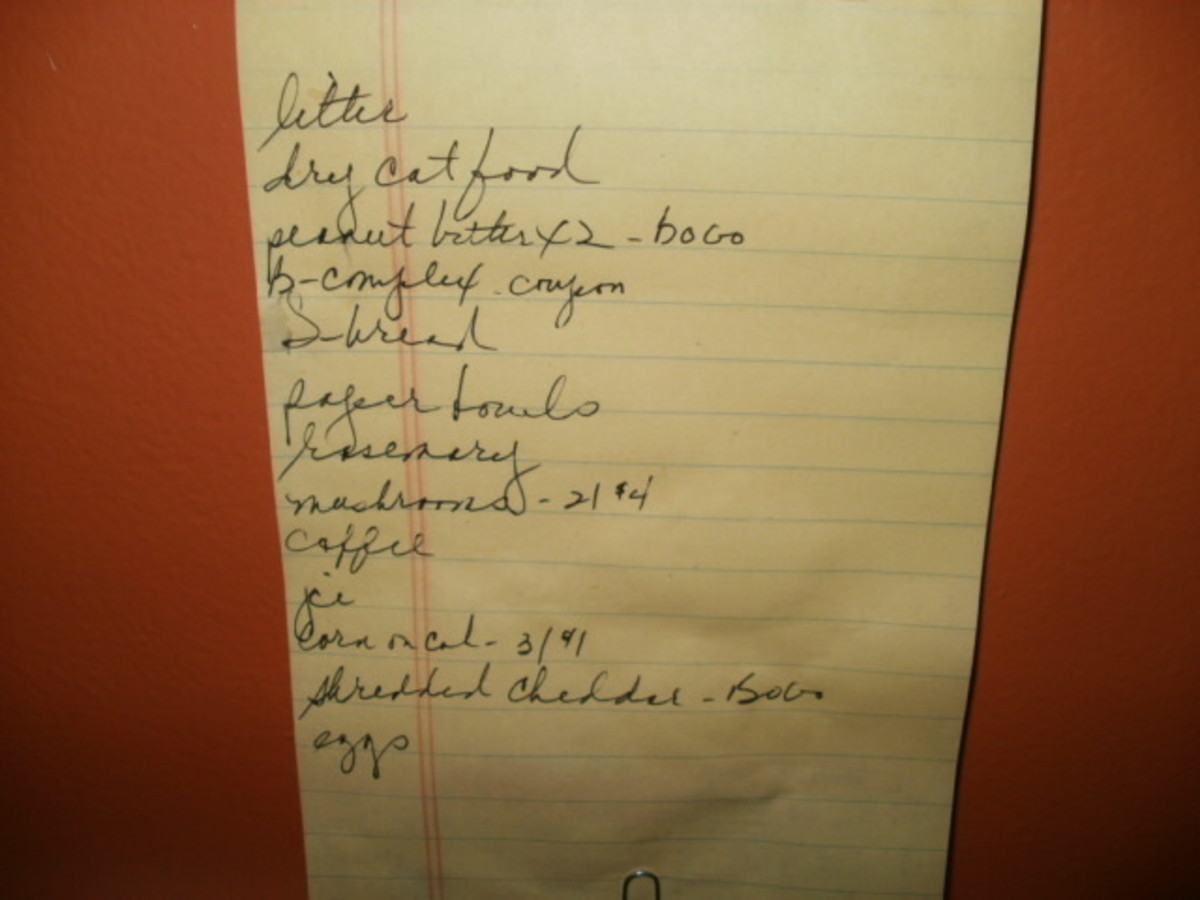 litter
dry cat food
peanut butter x2 - BOGO
B-complex - coupon
S-bread
paper towels
rosemary
mushrooms - 2/$4
coffee
ice
corn on cob - 3/$1
shredded cheddar - BOGO
eggs